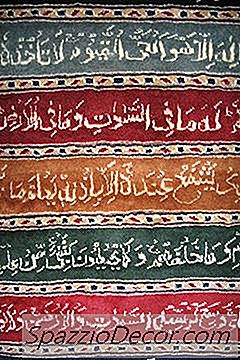 له الا هو الحي القيوم لا تأخذه
له ما في السموت وما في الارض
يشفع عنده الا باذنه يعلم ما
وما خلفهم ولا يحيطون من
السموت والارض ولا
SpazzioDecor.com